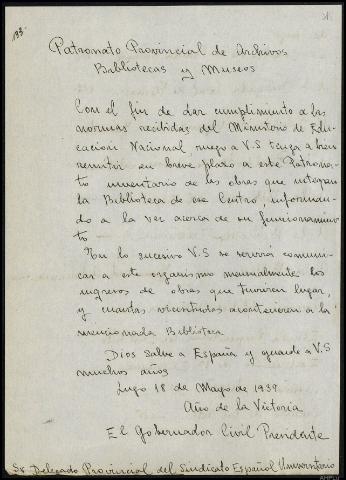 133
Patronato Provincial de Archivos
Bibliotecas y Museos
Con el fin de dar cumplimiento a las
normas recibidas del Ministerio de Edu-
cación Nacional ruego a V.S tenga a bien
remitir en breve plazo a este Patrona-
to inventario de las obras que integran
la Biblioteca de ese Centro, informan-
do a la vez acerca de su funcionamien
to
En lo sucesivo V.S se servirá comuni-
car a este organismo mensualmente los
ingresos de obras que tuvieren lugar,
y cuantas vicisitudes acontecieren a la
mencionada Biblioteca
Dios salve a España y guarde a V.S
muchos años
Lugo 18 de Mayo de 1939
Año de la Victoria
El Gobernador Civil Presidente
Sr Delegado Provincial del Sindicato Español Universitario
AHPLU